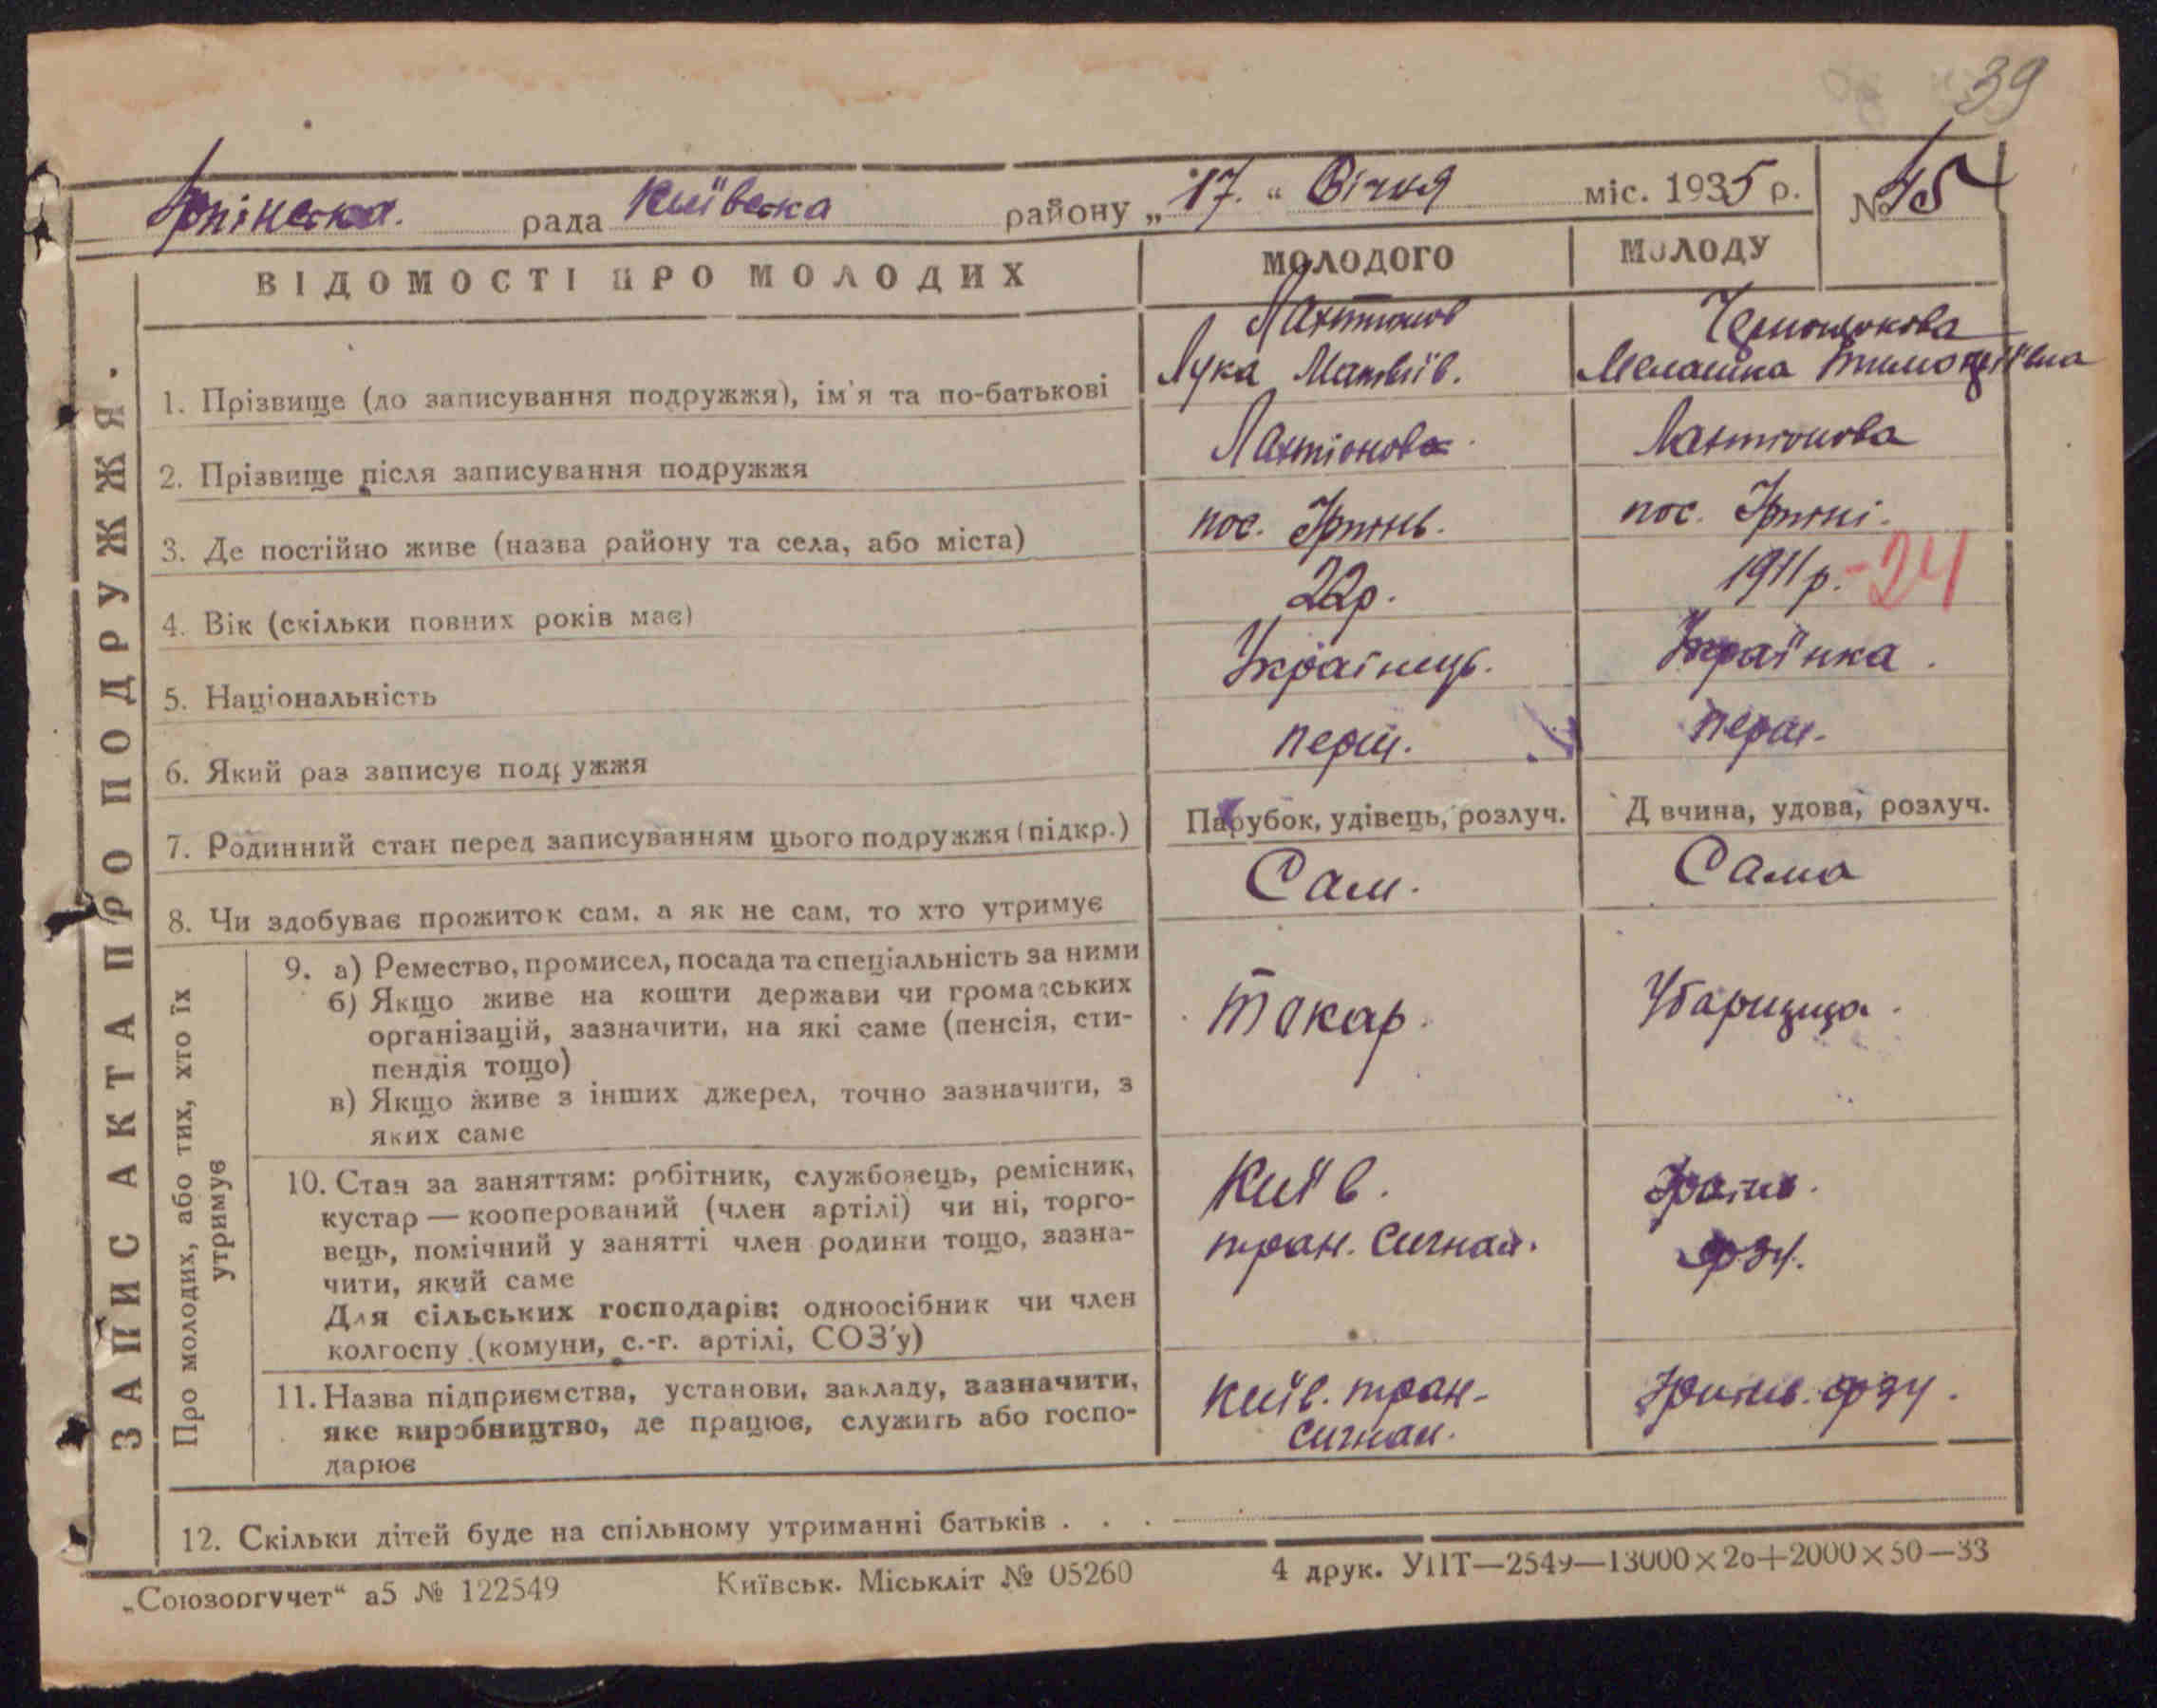 39
Ірпінська. рада Київська району „17.“ Січня міс. 1935 р. № 45
ВІДОМОСТІ ПРО МОЛОДИХ МОЛОДОГО МОЛОДУ
ЗАПИС АКТА ПРО ПОДРУЖЖЯ.
1. Прізвище (до записування подружжя), ім'я та по-батькові Лука Матвіїв. Мелашка
2. Прізвище після записування подружжя
3. Де постійно живе (назва району та села, або міста) пос. Ірпінь. пос. Ірпіні.
4. Вік (скільки повних років має) 22р. 1911р. -24
5. Національність Українець. Українка.
6. Який раз записує подружжя перш. перш.
7. Родинний стан перед записуванням цього подружжя (підкр.) Парубок, удівець, розлуч. Д вчина, удова, розлуч.
8. Чи здобуває прожиток сам, а як не сам, то хто утримує Сам. Сама
Про молодих, або тих, хто їх утримує
9. а) Ремество, промисел, посада та спеціальність за ними
б) Якщо живе на кошти держави чи громадських
організацій, зазначити, на які саме (пенсія, сти-
пендія тощо)
в) Якщо живе з інших джерел, точно зазначити, з
яких саме
Токар. Убарщица.
10. Стан за заняттям: робітник, службовець, ремісник,
кустар — кооперований (член артілі) чи ні, торго-
вець, помічний у занятті член родини тощо, зазна-
чити, який саме
Для сільських господарів: одноосібник чи член
колгоспу (комуни, с.-г. артілі, СОЗ'у)
Київ.
тран. Сигнал.
фзу.
11. Назва підприємства, установи, закладу, зазначити,
яке виробництво, де працює, служить або госпо-
дарює
Київ. тран.
сигнал.
фзу.
12. Скільки дітей буде на спільному утриманні батьків . . .
„Союзоргучет“ а5 № 122549 Київськ. Міськліт № 05260 4 друк. УПТ—2549—13000×20+2000×50—33